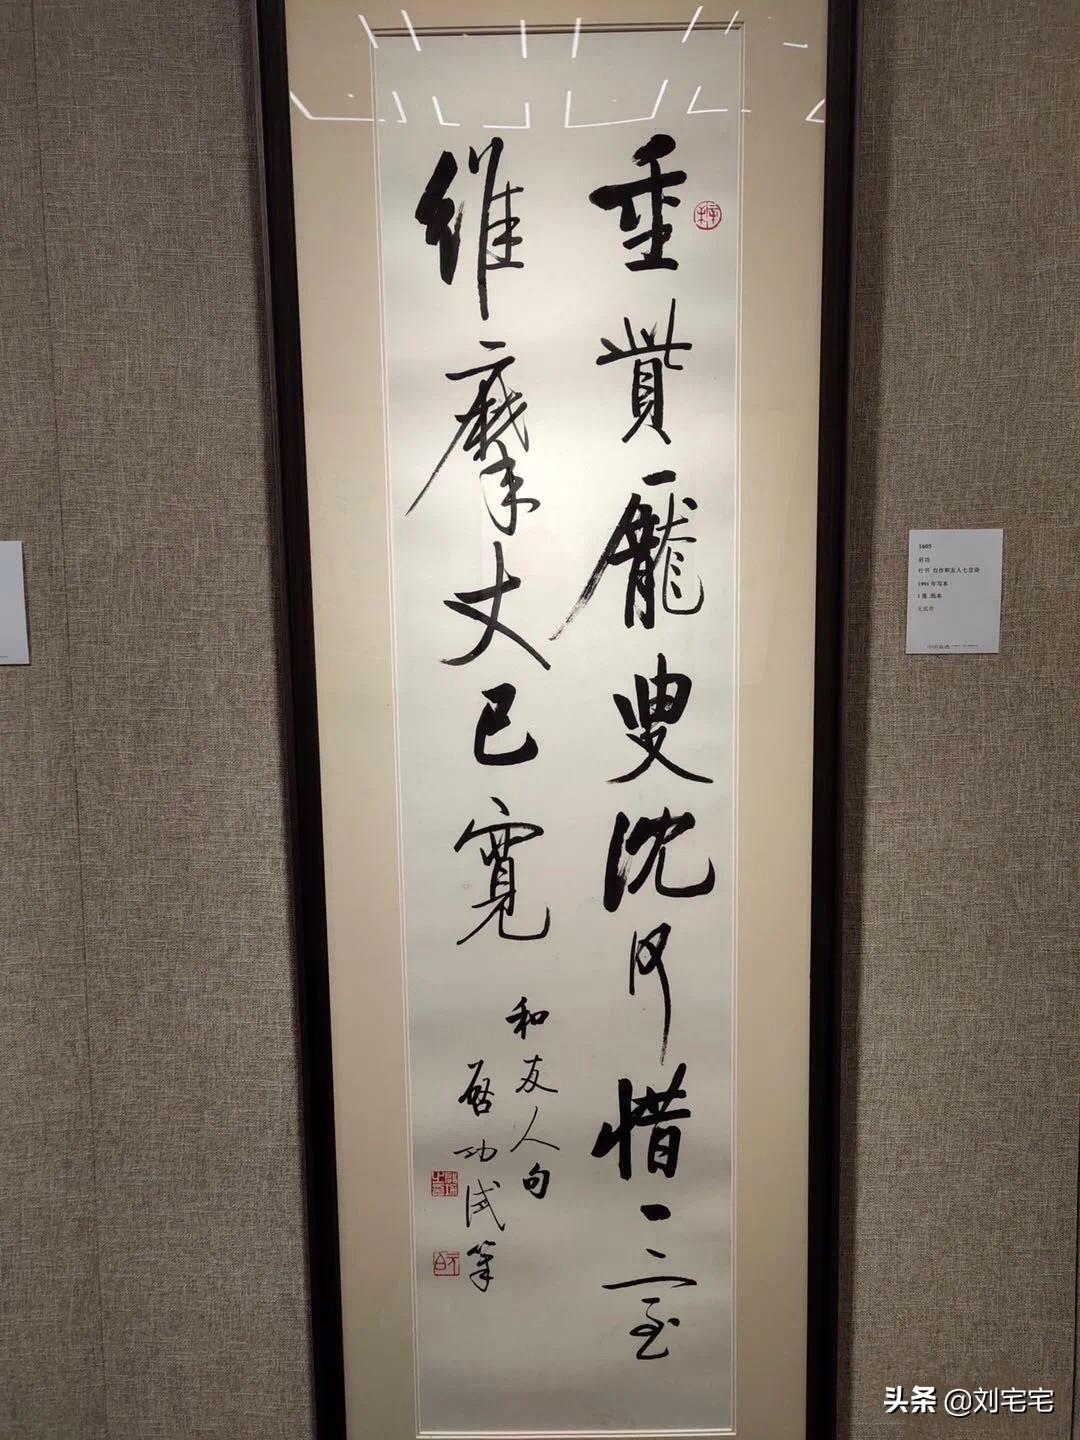 重赀庞叟沈何惜一室
維摩丈已寬
和友人句
啟功試筆
1605
启功
行书 自作和友人七言诗
1991 年写本
1 张 纸本
无底价
头条 @刘宅宅